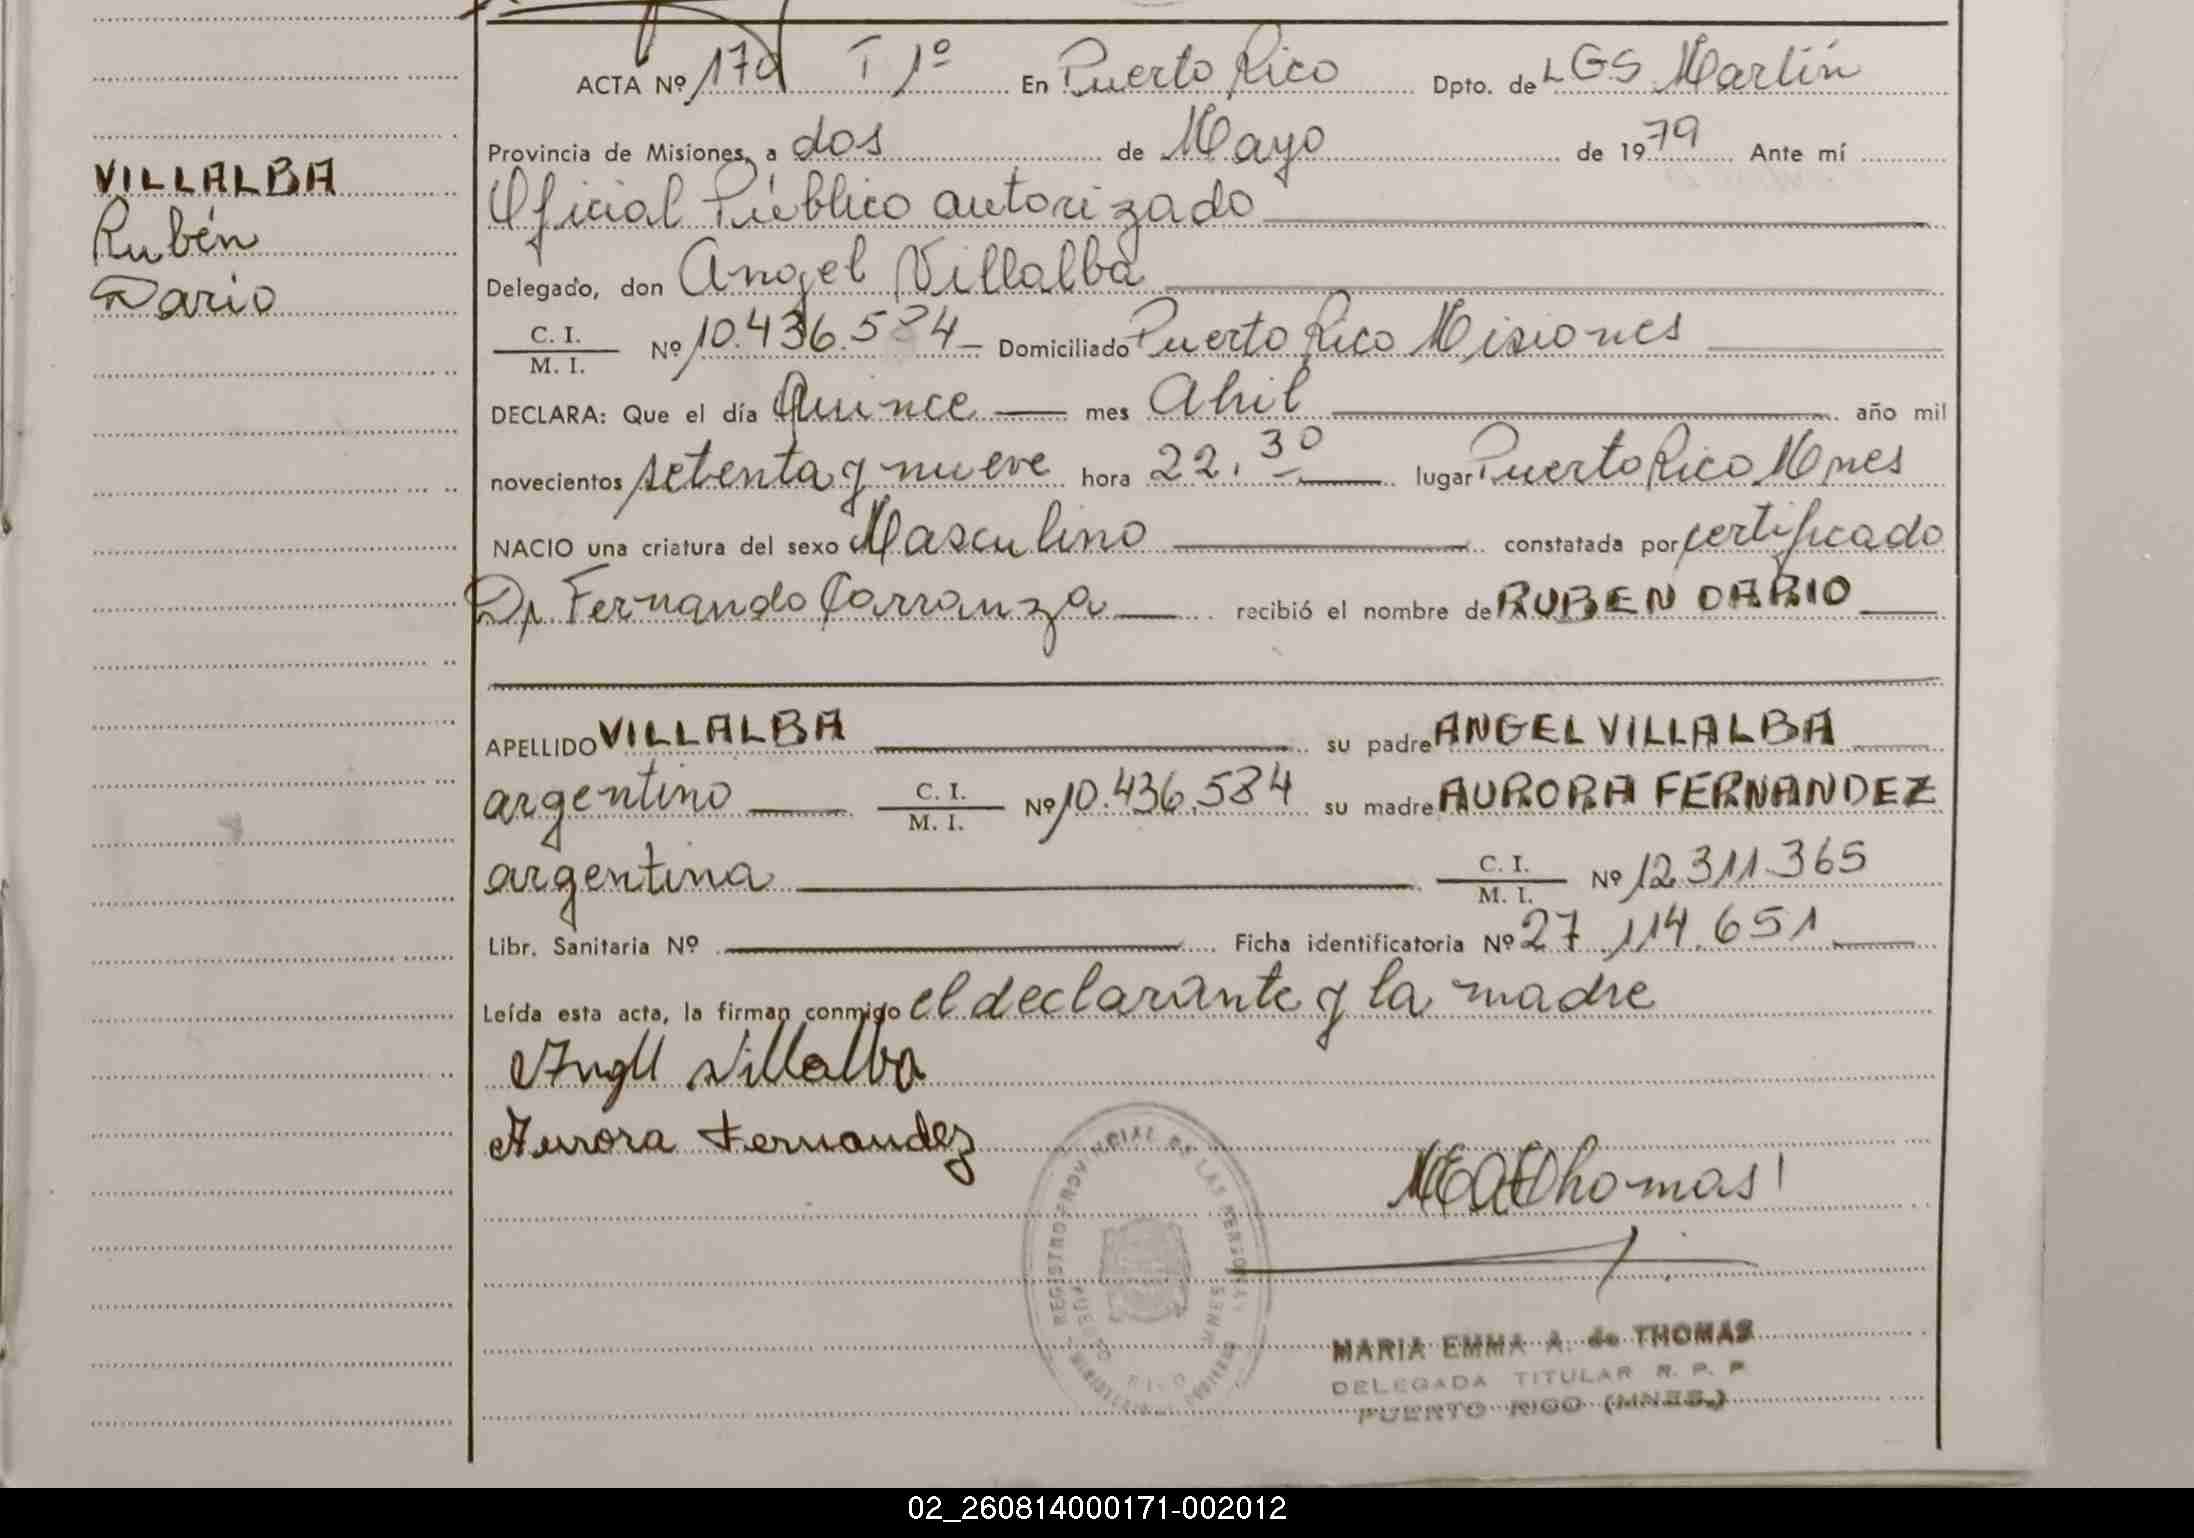 VILLALBA
Rubén
Dario
ACTA Nº 170 T 1º En Puerto Rico Dpto. de L.G.S. Martín
Provincia de Misiones, a dos de Mayo de 1979 Ante mí
Oficial Público autorizado
Delegado, don Angel Villalba
C. I.
M. I. Nº 10.436.584 Domiciliado Puerto Rico Misiones
DECLARA: Que el día Quince mes Abril año mil
novecientos setenta y nueve hora 22.30 lugar Puerto Rico Mnes
NACIO una criatura del sexo Masculino constatada por certificado
Dr. Fernando Carranza recibió el nombre de RUBEN DARIO
APELLIDO VILLALBA su padre ANGEL VILLALBA
argentino C. I.
M. I. Nº 10.436.584 su madre AURORA FERNANDEZ
argentina C. I.
M. I. Nº 12.311.365
Libr. Sanitaria Nº Ficha identificatoria Nº 27.114.651
Leída esta acta, la firman conmigo el declarante y la madre
Angel Villalba
Aurora Fernandez
Thomas
REGISTRO PROVINCIAL DE LAS PERSONAS
PUERTO RICO MNES
MARIA EMMA A. de THOMAS
DELEGADA TITULAR R. P. P.
PUERTO RICO (MNES.)
02_260814000171-002012